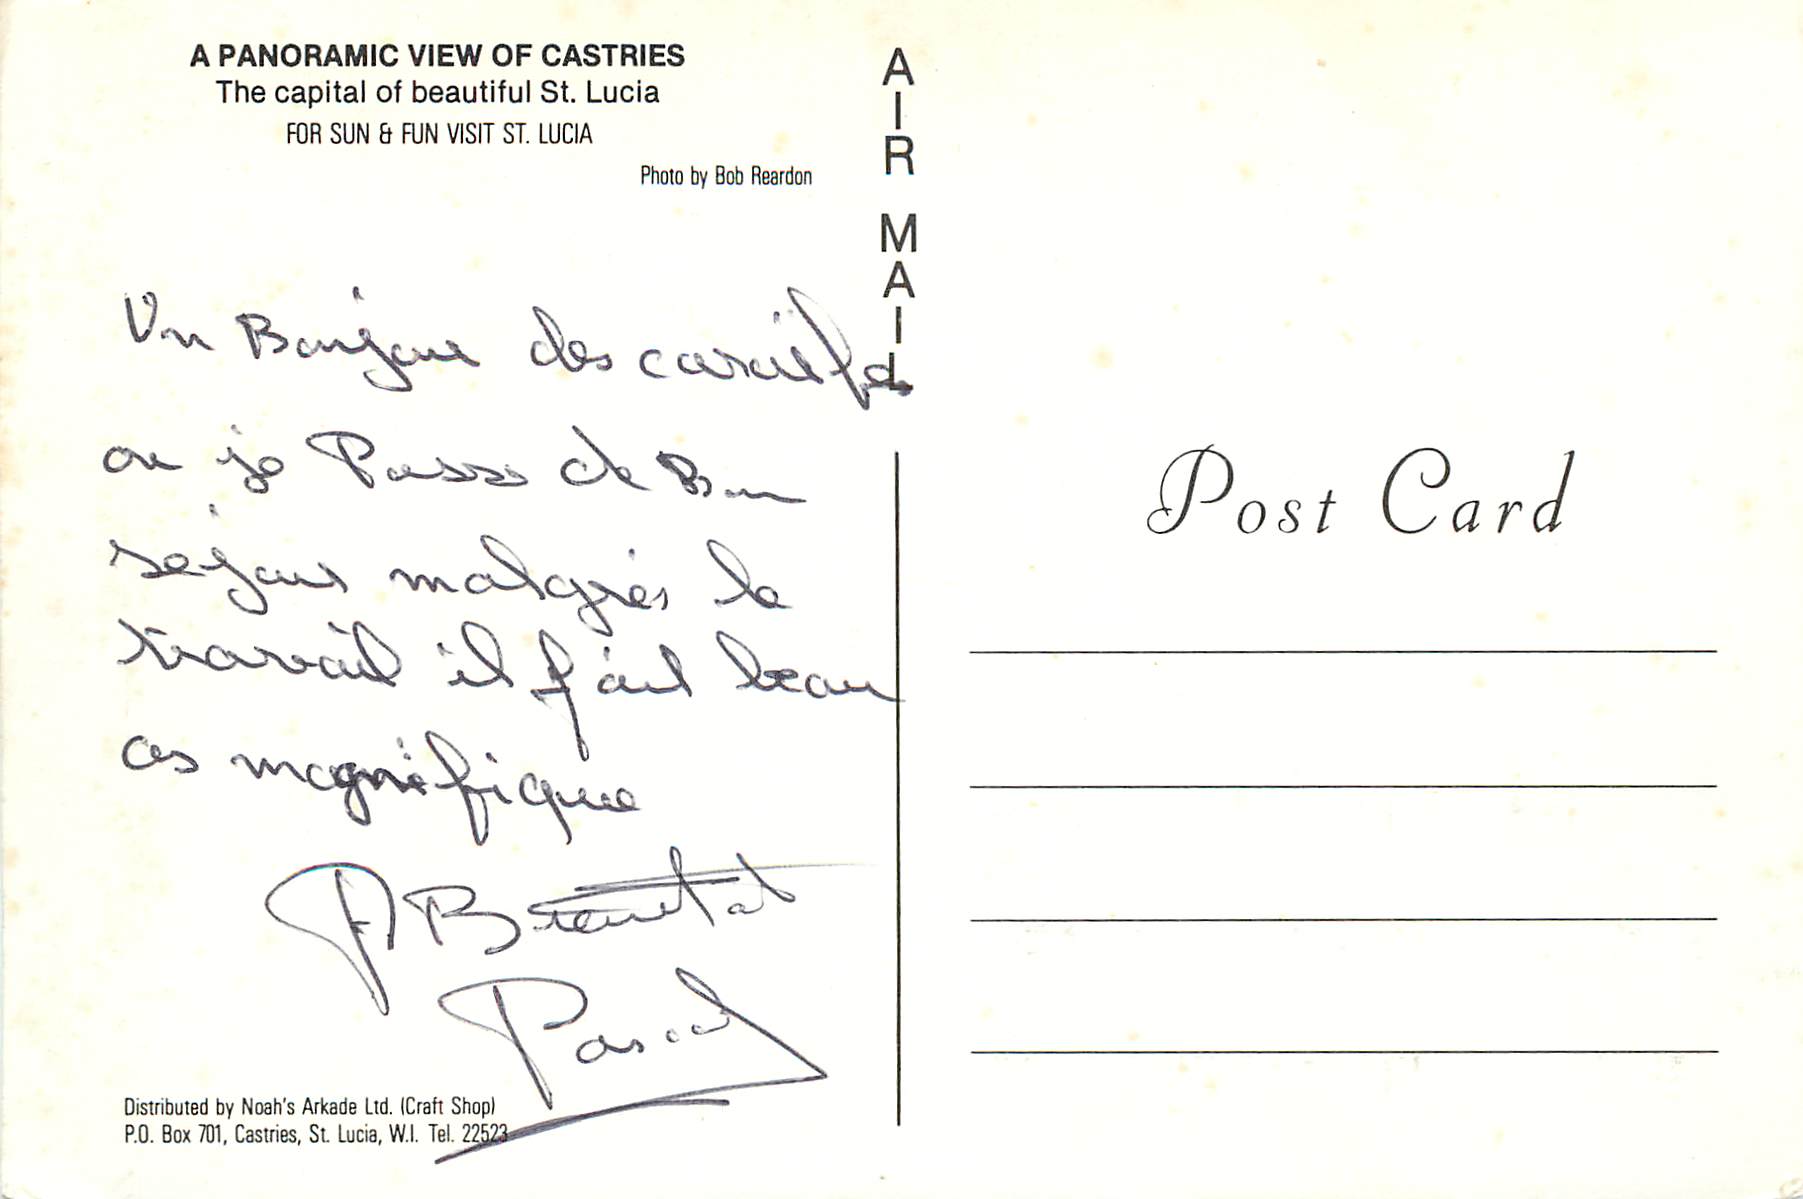 A PANORAMIC VIEW OF CASTRIES
The capital of beautiful St. Lucia
FOR SUN & FUN VISIT ST. LUCIA
Photo by Bob Reardon
AIR MAIL
Un Bonjour des
ou je Passe de Bon
sejour malgrés le
travail il fait beau
ces magnifique
Pascal
Distributed by Noah's Arkade Ltd. (Craft Shop)
P.O. Box 701, Castries, St. Lucia, W.I. Tel. 22523
Post Card